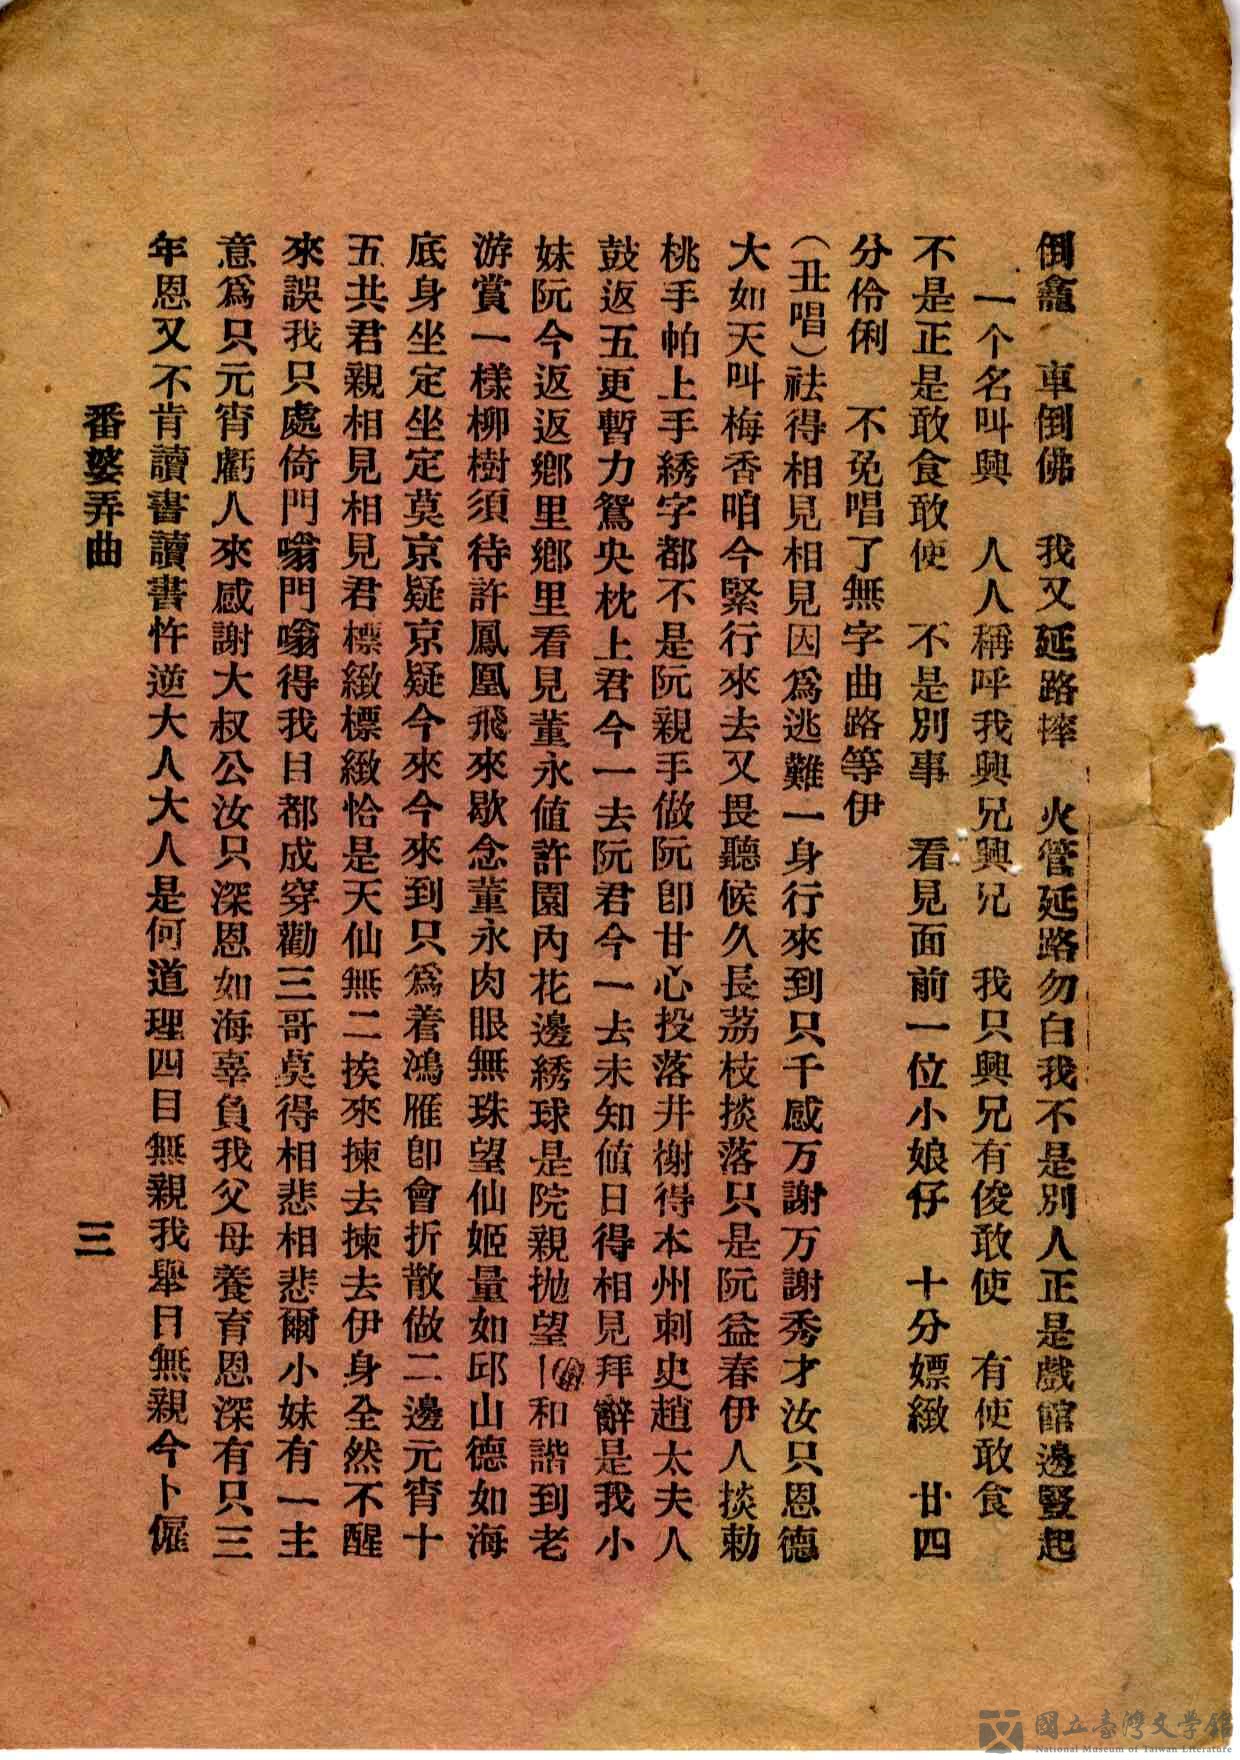 倒龕　車倒佛　我又延路摔　火管延路勿白我不是別人正是戲館邊竪起
一个名叫興　人人稱呼我興兄興兄　我只興兄有俊敢使　有使敢食
不是正是敢食敢使　不是別事　看見面前一位小娘仔　十分嫖緻　廿四
分伶俐　不免唱了無字曲路等伊
（丑唱）祛得相見相見因爲逃難一身行來到只千感万謝万謝秀才汝只恩德
大如天叫梅香咱今緊行來去又畏聽候久長荔枝掞落只是阮益春伊人掞勅
桃手帕上手綉字都不是阮親手做阮卽甘心投落井榭得本州刺史趙太夫人
鼓返五更暫力鴛央枕上君今一去阮君今一去未知値日得相見拜辭是我小
妹阮今返返鄉里鄉里看見董永値許園內花邊綉球是院親抛望和諧到老
游賞一樣柳樹須待許鳳凰飛來歇念董永肉眼無珠望仙姬量如邱山德如海
底身坐定坐定莫京疑京疑今來今來到只爲着鴻雁卽會折散做二邊元宵十
五共君親相見相見君標緻標緻恰是天仙無二挨來揀去揀去伊身全然不醒
來誤我只處倚門嗡門嗡得我目都成穿勸三哥莫得相悲相悲爾小妹有一主
意爲只元宵虧人來感謝大叔公汝只深恩如海辜負我父母養育恩深有只三
年恩又不肯讀書讀書忤逆大人大人是何道理四目無親我舉目無親今卜僱
番婆弄曲
三
國立臺灣文學館
National Museum of Taiwan Literature